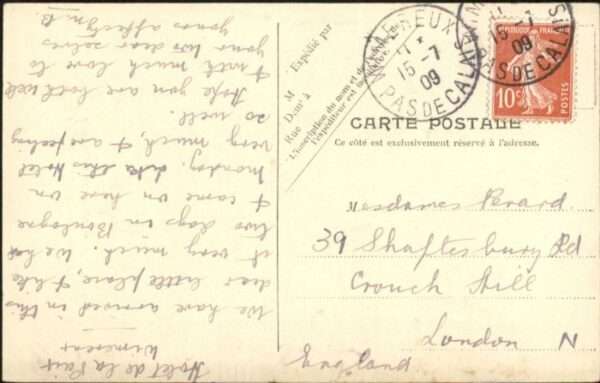 Hotel de la Paix
Wimereux
We have arrived in this
dear little place, & like
it very much. We had
two days in Boulogne
& came on here on
Monday, like this Hotel
very much, & are feeling
so well.
Hope you are both well
& with much love to
your two dear selves
yours affectly
M
Expédié par
Demt à
Rue
L'inscription du nom et de
l'expéditeur est
WIMEREUX
15 -7
09
PAS DE CALAIS
15 -7
09
PAS DE CALAIS
REPUBLIQUE FRANÇAISE
10c
POSTES
CARTE POSTALE
Ce côté est exclusivement réservé à l'adresse.
Mesdames Perard.
39 Shaftesbury Rd
Crouch Hill
London N
England